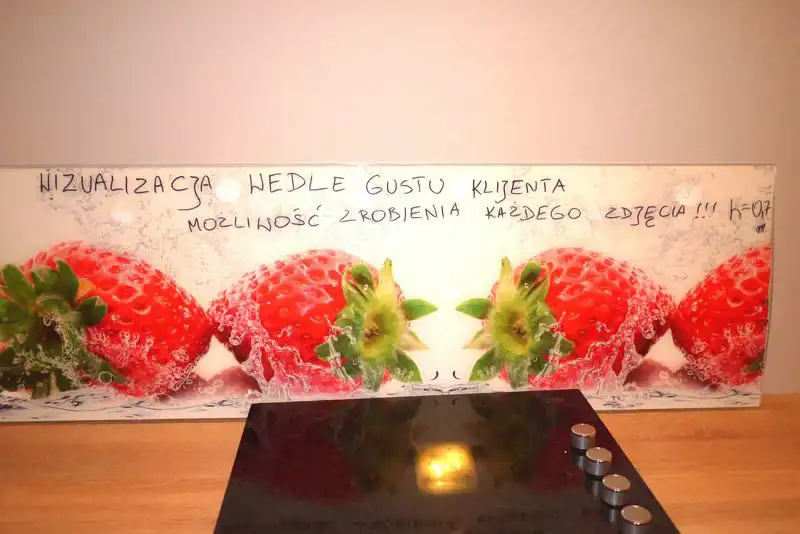 WIZUALIZACJA WEDLE GUSTU KLIJENTA
MOŻLIWOŚĆ ZROBIENIA KAŻDEGO ZDJĘCIA!!! h=0,7
m